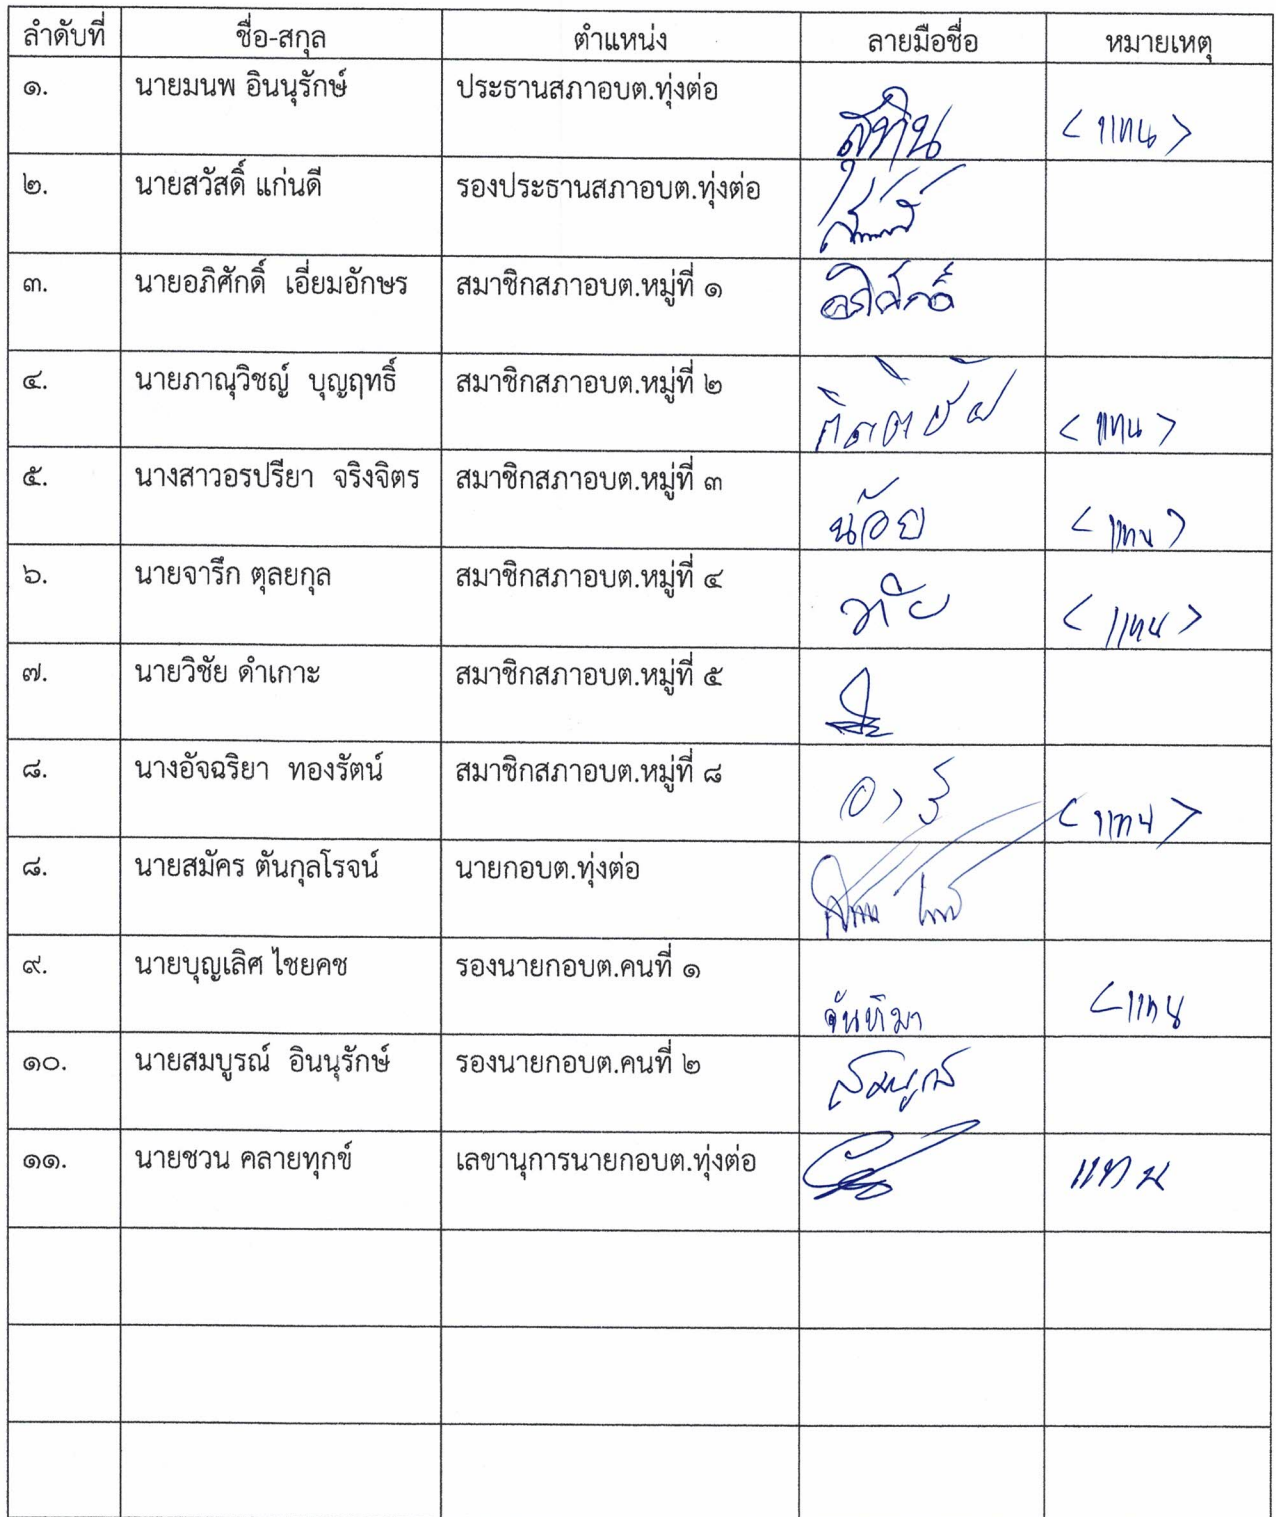 ลำดับที่ ชื่อ-สกุล ตำแหน่ง ลายมือชื่อ หมายเหตุ
๑. นายมนพ อินนุรักษ์ ประธานสภาอบต.ทุ่งต่อ สุทิน <แทน>
๒. นายสวัสดิ์ แก่นดี รองประธานสภาอบต.ทุ่งต่อ
๓. นายอภิศักดิ์ เอี่ยมอักษร สมาชิกสภาอบต.หมู่ที่ ๑ อภิศักดิ์
๔. นายภาณุวิชญ์ บุญฤทธิ์ สมาชิกสภาอบต.หมู่ที่ ๒ กิตติชัย <แทน>
๕. นางสาวอรปรียา จริงจิตร สมาชิกสภาอบต.หมู่ที่ ๓ น้อย <แทน>
๖. นายจารึก ตุลยกุล สมาชิกสภาอบต.หมู่ที่ ๔ <แทน>
๗. นายวิชัย ดำเกาะ สมาชิกสภาอบต.หมู่ที่ ๕
๘. นางอัจฉริยา ทองรัตน์ สมาชิกสภาอบต.หมู่ที่ ๘ <แทน>
๘. นายสมัคร ตันกุลโรจน์ นายกอบต.ทุ่งต่อ
๙. นายบุญเลิศ ไชยคช รองนายกอบต.คนที่ ๑ จันทิมา <แทน
๑๐. นายสมบูรณ์ อินนุรักษ์ รองนายกอบต.คนที่ ๒ สมบูรณ์
๑๑. นายชวน คลายทุกข์ เลขานุการนายกอบต.ทุ่งต่อ แทน